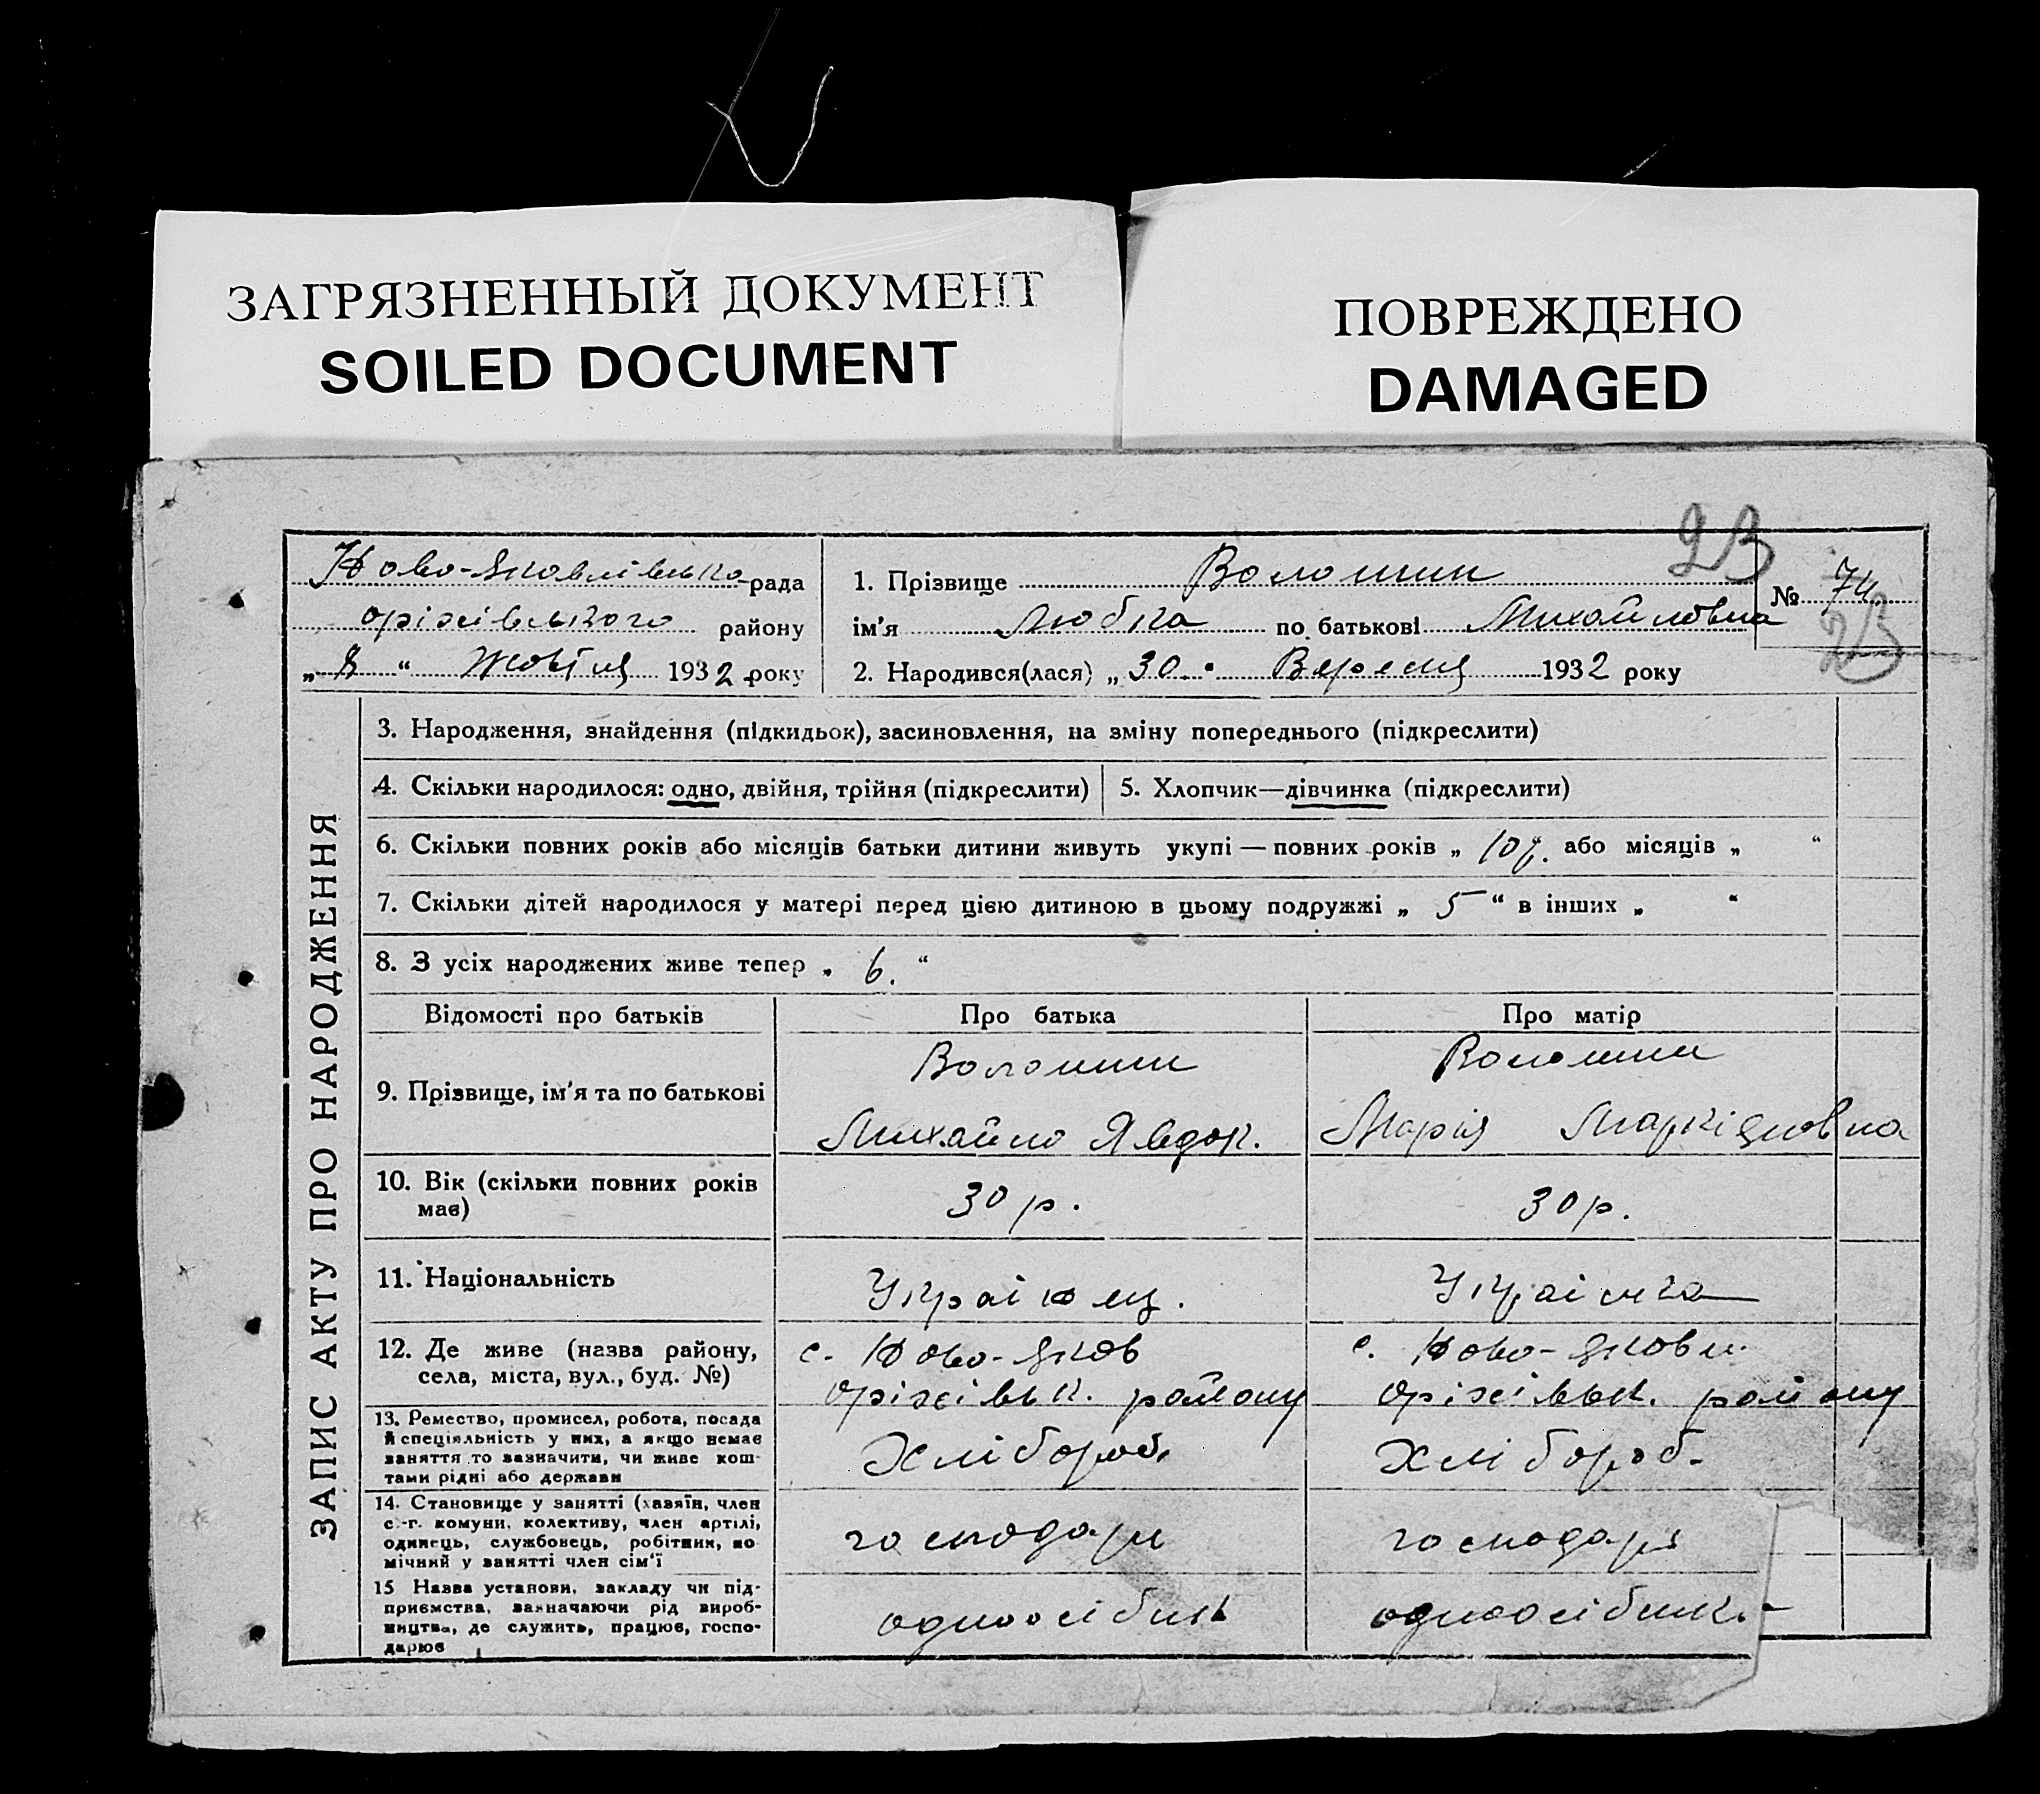 ЗАГРЯЗНЕННЫЙ ДОКУМЕНТ
SOILED DOCUMENT
ПОВРЕЖДЕНО
DAMAGED
23
Ново-Яковлівська рада
оріхівського району
„ 8 “ Жовтня 1932 року
1. Прізвище Волошин
ім'я Любка по батькові Михайловна
2. Народився(лася) „ 30 “ Вересня 1932 року
№ 74
23
ЗАПИС АКТУ ПРО НАРОДЖЕННЯ
3. Народження, знайдення (підкидьок), засиновлення, на зміну попереднього (підкреслити)
4. Скільки народилося: одно, двійня, трійня (підкреслити)
5. Хлопчик—дівчинка (підкреслити)
6. Скільки повних років або місяців батьки дитини живуть укупі — повних років „ 10 р. або місяців „ “
7. Скільки дітей народилося у матері перед цією дитиною в цьому подружжі „ 5 “ в інших „ “
8. З усіх народжених живе тепер „ 6. “
Відомості про батьків Про батька Про матір
9. Прізвище, ім'я та по батькові
Волошин
Михайло Явдок.
Волошин
Марія Маркіяновна
10. Вік (скільки повних років
має)
30 р.
30 р.
11. Національність
Украінец.
Украінка
12. Де живе (назва району,
села, міста, вул., буд. №)
с. Ново-Яков
оріхівськ. району
с. Ново-Яковл.
оріхівськ. району
13. Ремество, промисел, робота, посада
й спеціяльність у них, а якщо немає
заняття то зазначити, чи живе кош-
тами рідні або держави
Хлібороб.
Хлібороб.
14. Становище у занятті (хазяїн, член
с.-г. комуни, колективу, член артілі,
одинець, службовець, робітник, по
мічний у занятті член сім'ї
господарь
господарь
15 Назва установи, закладу чи під-
приємства, зазначаючи рід вироб-
ництва, де служить, працює, госпо-
дарює
одноосібник
одноосібник.